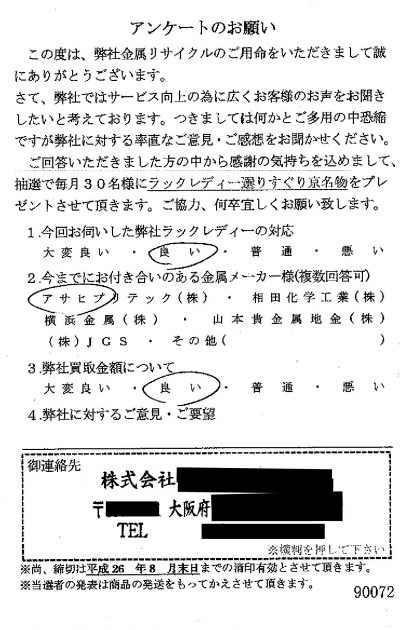 アンケートのお願い
この度は、弊社金属リサイクルのご用命をいただきまして誠
にありがとうございます。
さて、弊社ではサービス向上の為に広くお客様のお声をお聞き
したいと考えております。つきましては何かとご多用の中恐縮
ですが弊社に対する率直なご意見・ご感想をお聞かせください。
ご回答いただきました方の中から感謝の気持ちを込めまして、
抽選で毎月30名様にラックレディー選りすぐり京名物をプレ
ゼントさせて頂きます。ご協力、何卒宜しくお願い致します。
1.今回お伺いした弊社ラックレディーの対応
大変良い・良い・普通・悪い
2.今までにお付き合いのある金属メーカー様(複数回答可)
アサヒプリテック(株)・相田化学工業(株)
横浜金属(株)・山本貴金属地金(株)
(株)JGS・その他( )
3.弊社買取金額について
大変良い・良い・普通・悪い
4.弊社に対するご意見・ご要望
御連絡先
株式会社
〒 大阪府
TEL
※横判を押して下さい
※尚、締切は平成26年8月末日までの消印有効とさせて頂きます。
※当選者の発表は商品の発送をもってかえさせて頂きます。
90072